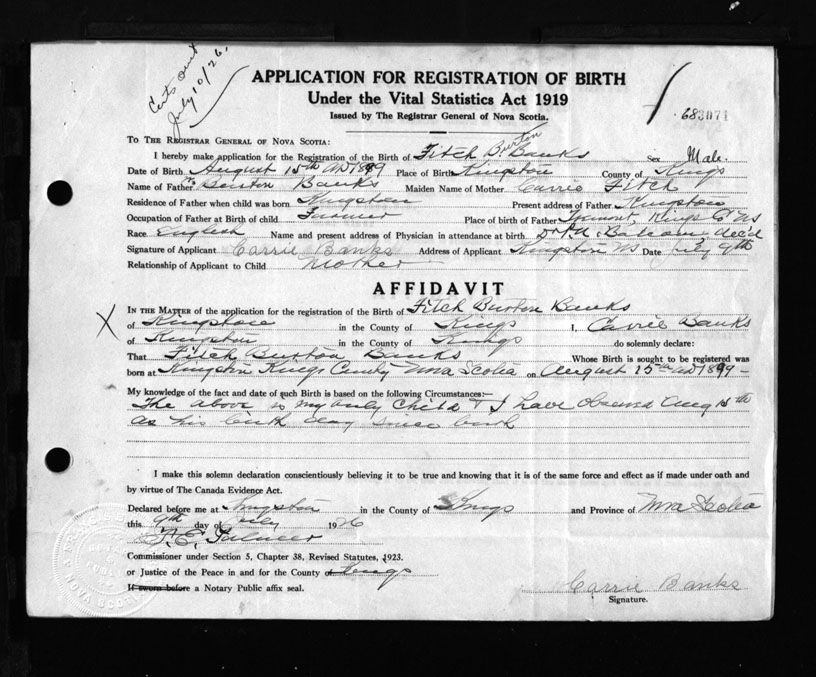 Certs out
July 10/26.
APPLICATION FOR REGISTRATION OF BIRTH
Under the Vital Statistics Act 1919
Issued by The Registrar General of Nova Scotia.
683071
To The Registrar General of Nova Scotia:
I hereby make application for the Registration of the Birth of Fitch B. Burton Banks Sex Male.
Date of Birth August 15th AD 1899 Place of Birth Kingston County of Kings
Name of Father Burton Banks Maiden Name of Mother Carrie Fitch
Residence of Father when child was born Kingston Present address of Father Kingston
Occupation of Father at Birth of child Farmer Place of birth of Father Tremont, Kings Co NS
Race English Name and present address of Physician in attendance at birth Dr. dec'd
Signature of Applicant Carrie Banks Address of Applicant Kingston NS Date July 9th
Relationship of Applicant to Child Mother
AFFIDAVIT
In the Matter of the application for the registration of the Birth of Fitch Burton Banks
X of Kingston in the County of Kings I, Carrie Banks
of Kingston in the County of Kings do solemnly declare:
That Fitch Burton Banks Whose Birth is sought to be registered was
born at Kingston Kings County Nova Scotia on August 15th AD 1899
My knowledge of the fact and date of such Birth is based on the following Circumstances:—
The above is my only Child & I have observed Aug 15th
as his birth day since birth
I make this solemn declaration conscientiously believing it to be true and knowing that it is of the same force and effect as if made under oath and
by virtue of The Canada Evidence Act.
Declared before me at Kingston in the County of Kings and Province of Nova Scotia
this 9th day of July 1926
Commissioner under Section 5, Chapter 38, Revised Statutes, 1923.
or Justice of the Peace in and for the County Kings
If sworn before a Notary Public affix seal.
Carrie Banks
Signature.